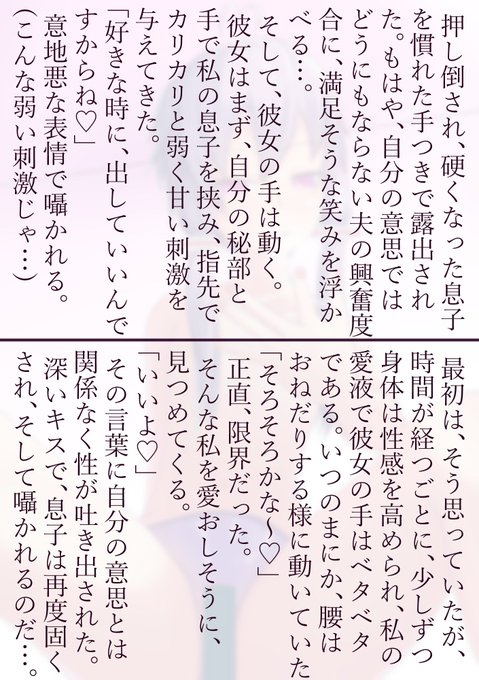 押し倒され、硬くなった息子
を慣れた手つきで露出され
た。もはや、自分の意思では
どうにもならない夫の興奮度
合に、満足そうな笑みを浮か
べる…。
そして、彼女の手は動く。
彼女はまず、自分の秘部と
手で私の息子を挟み、指先で
カリカリと弱く甘い刺激を
与えてきた。
「好きな時に、出していいんで
すからね♡」
意地悪な表情で囁かれる。
(こんな弱い刺激じゃ…)
最初は、そう思っていたが、
時間が経つごとに、少しずつ
身体は性感を高められ、私の
愛液で彼女の手はベタベタ
である。いつのまにか、腰は
おねだりする様に動いていた
「そろそろかな～♡」
正直、限界だった。
そんな私を愛おしそうに、
見つめてくる。
「いいよ♡」
その言葉に自分の意思とは
関係なく性が吐き出された。
深いキスで、息子は再度固く
され、そして囁かれるのだ…。